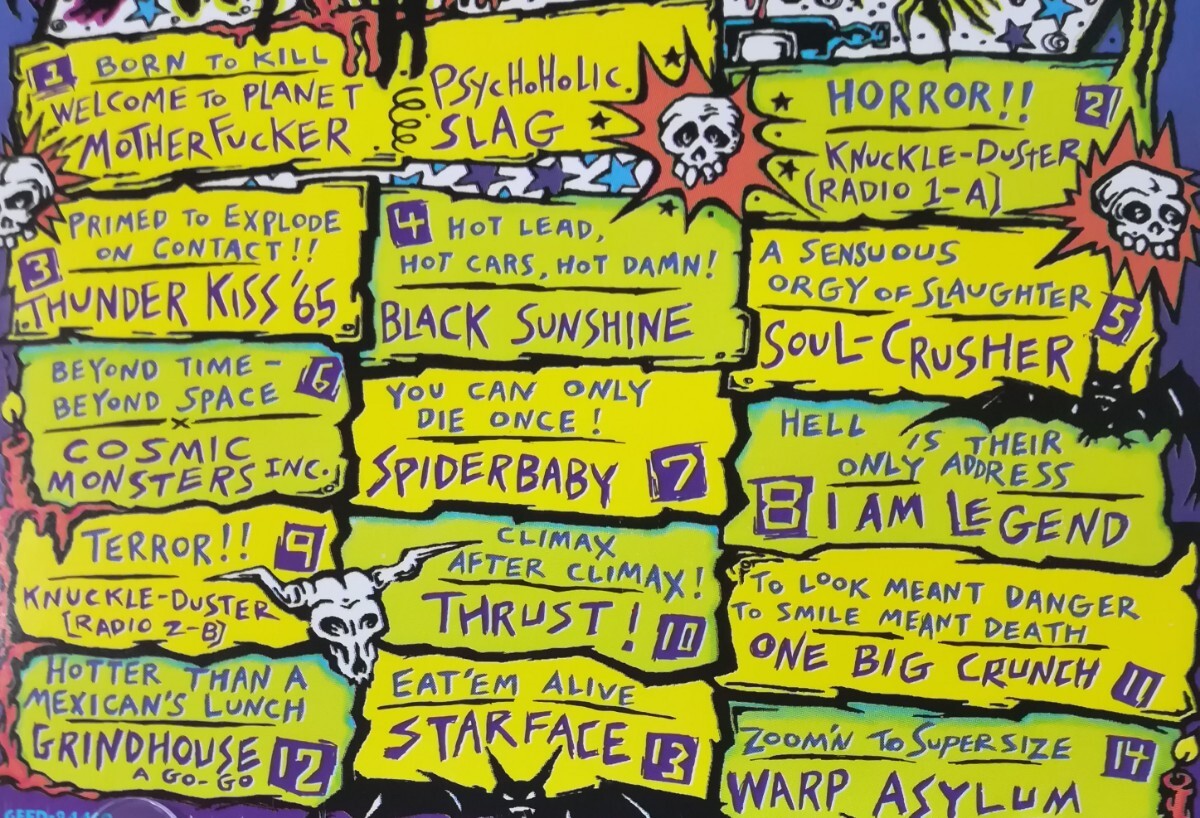 1 BORN TO KILL
WELCOME TO PLANET
MOTHERFUCKER
PSYCHOHOLIC
SLAG
HORROR!! 2
KNUCKLE-DUSTER
(RADIO 1-A)
PRIMED TO EXPLODE
ON CONTACT!!
3
THUNDER KISS '65
4 HOT LEAD,
HOT CARS, HOT DAMN!
BLACK SUNSHINE
A SENSUOUS
ORGY OF SLAUGHTER
5
SOUL-CRUSHER
BEYOND TIME - 6
BEYOND SPACE
COSMIC
MONSTERS INC.
YOU CAN ONLY
DIE ONCE!
SPIDERBABY 7
HELL IS THEIR
ONLY ADDRESS
8 I AM LEGEND
TERROR!! 9
KNUCKLE-DUSTER
[RADIO 2-B]
CLIMAX
AFTER CLIMAX!
THRUST! 10
TO LOOK MEANT DANGER
TO SMILE MEANT DEATH
ONE BIG CRUNCH 11
HOTTER THAN A
MEXICAN'S LUNCH
GRINDHOUSE 12
A GO-GO
EAT 'EM ALIVE
STARFACE 13
ZOOM'N TO SUPERSIZE 14
WARP ASYLUM